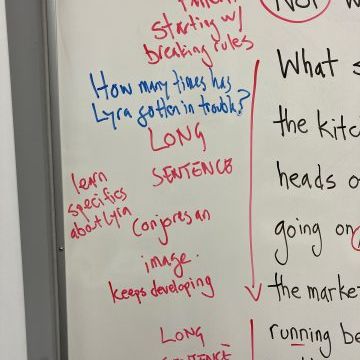 starting w/
breaking rules
How many times has
Lyra gotten in trouble?
LONG
SENTENCE
learn
specifics
about Lyra
Conjores an
image.
keeps developing
LONG
SENTENCE
Not
What
the kitc
heads o
going on
the marke
running be